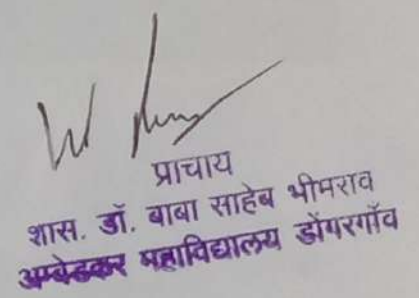 प्राचाय
शास. डॉ. बाबा साहेब भीमराव
अम्बेडकर महाविद्यालय डोंगरगॉव